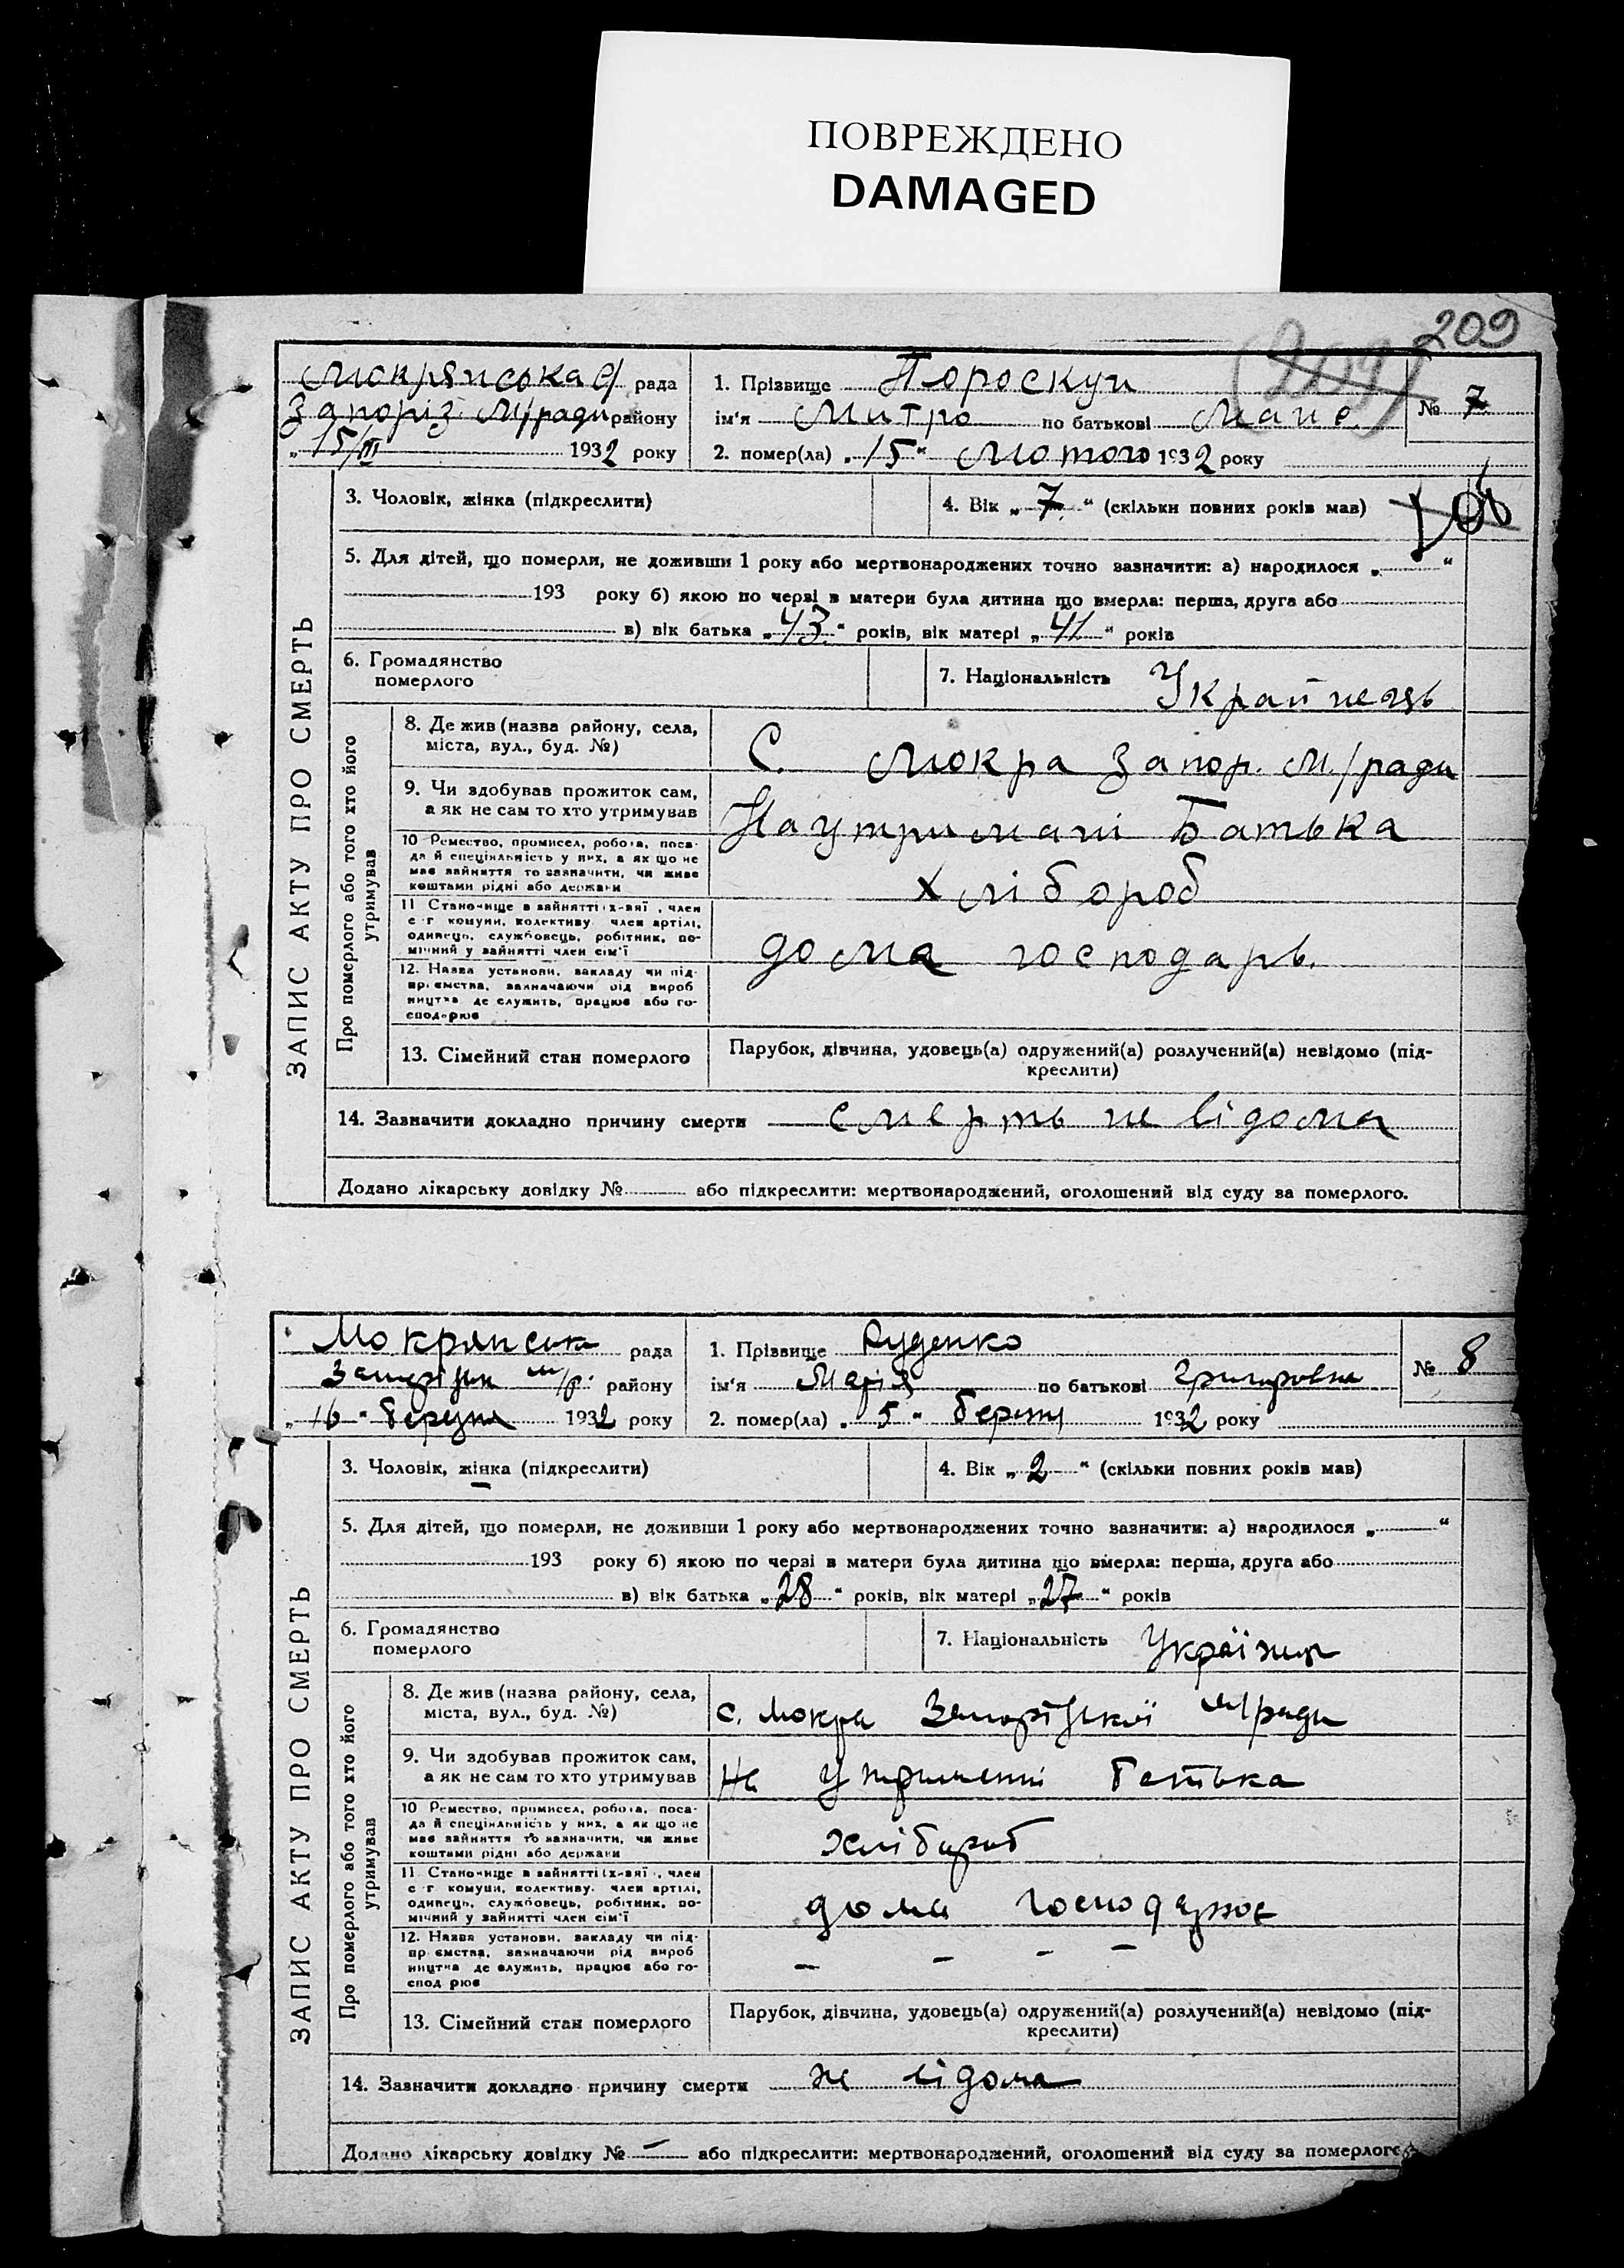 ПОВРЕЖДЕНО
DAMAGED
209
Мокрянська с/ рада
Запоріз. М/ради району
„ 15/III 1932 року
1. Прізвище Пороскун
ім'я Митро по батькові
№ 7
2. помер(ла) „ 15 “ Лютого 1932 року
3. Чоловік, жінка (підкреслити)
4. Вік „ 7 “ (скільки повних років мав)
5. Для дітей, що померли, не доживши 1 року або мертвонароджених точно зазначити: а) народилося „ “
193 року б) якою по черзі в матери була дитина що вмерла: перша, друга або
в) вік батька „ 43 “ років, вік матері „ 41 “ років
6. Громадянство
померлого
7. Національність Украйнець
ЗАПИС АКТУ ПРО СМЕРТЬ
Про померлого або того хто його
утримував
8. Де жив (назва району, села,
міста, вул., буд. №)
С. Мокра Запор. М./ради
9. Чи здобував прожиток сам,
а як не сам то хто утримував
На утримані Батька
10 Ремество, промисел, робота, поса-
да й спеціяльність у них, а як що не
має зайняття то зазначити, чи живе
коштами рідні або держави
хлібороб
11 Становище в зайнятті (х-вяї , член
с г комуни, колективу, член артілі,
одинець, службовець, робітник, по-
мічний у зайнятті член сім'ї
дома господарь.
12. Назва установи, закладу чи під-
приємства, зазначаючи рід вироб
ництва де служить, працює або го-
сподарює
13. Сімейний стан померлого
Парубок, дівчина, удовець(а) одружений(а) розлучений(а) невідомо (під-
креслити)
14. Зазначити докладно причину смерти смерть не відома
Додано лікарську довідку № або підкреслити: мертвонароджений, оголошений від суду за померлого.
Мокрянська рада
Запорізьк м/р. району
„ 16 “ березня 1932 року
1. Прізвище Руденко
ім'я Марія по батькові Григоровна
№ 8
2. помер(ла) „ 5 “ березня 1932 року
3. Чоловік, жінка (підкреслити)
4. Вік „ 2 “ (скільки повних років мав)
5. Для дітей, що померли, не доживши 1 року або мертвонароджених точно зазначити: а) народилося „ “
193 року б) якою по черзі в матери була дитина що вмерла: перша, друга або
в) вік батька „ 28 “ років, вік матері „ 27 “ років
6. Громадянство
померлого
7. Національність Українка
ЗАПИС АКТУ ПРО СМЕРТЬ
Про померлого або того хто його
утримував
8. Де жив (назва району, села,
міста, вул., буд. №)
с. Мокра Запорізької м/ради
9. Чи здобував прожиток сам,
а як не сам то хто утримував
На утриманні батька
10 Ремество, промисел, робота, поса-
да й спеціяльність у них, а як що не
має зайняття то зазначити, чи живе
коштами рідні або держави
хлібороб
11 Становище в зайнятті (х-вяї , член
с г комуни, колективу, член артілі,
одинець, службовець, робітник, по-
мічний у зайнятті член сім'ї
дома господарює
12. Назва установи, закладу чи під-
приємства, зазначаючи рід вироб
ництва де служить, працює або го-
сподарює
– – – –
13. Сімейний стан померлого
Парубок, дівчина, удовець(а) одружений(а) розлучений(а) невідомо (під-
креслити)
14. Зазначити докладно причину смерти не відома
Додано лікарську довідку № – або підкреслити: мертвонароджений, оголошений від суду за померлого